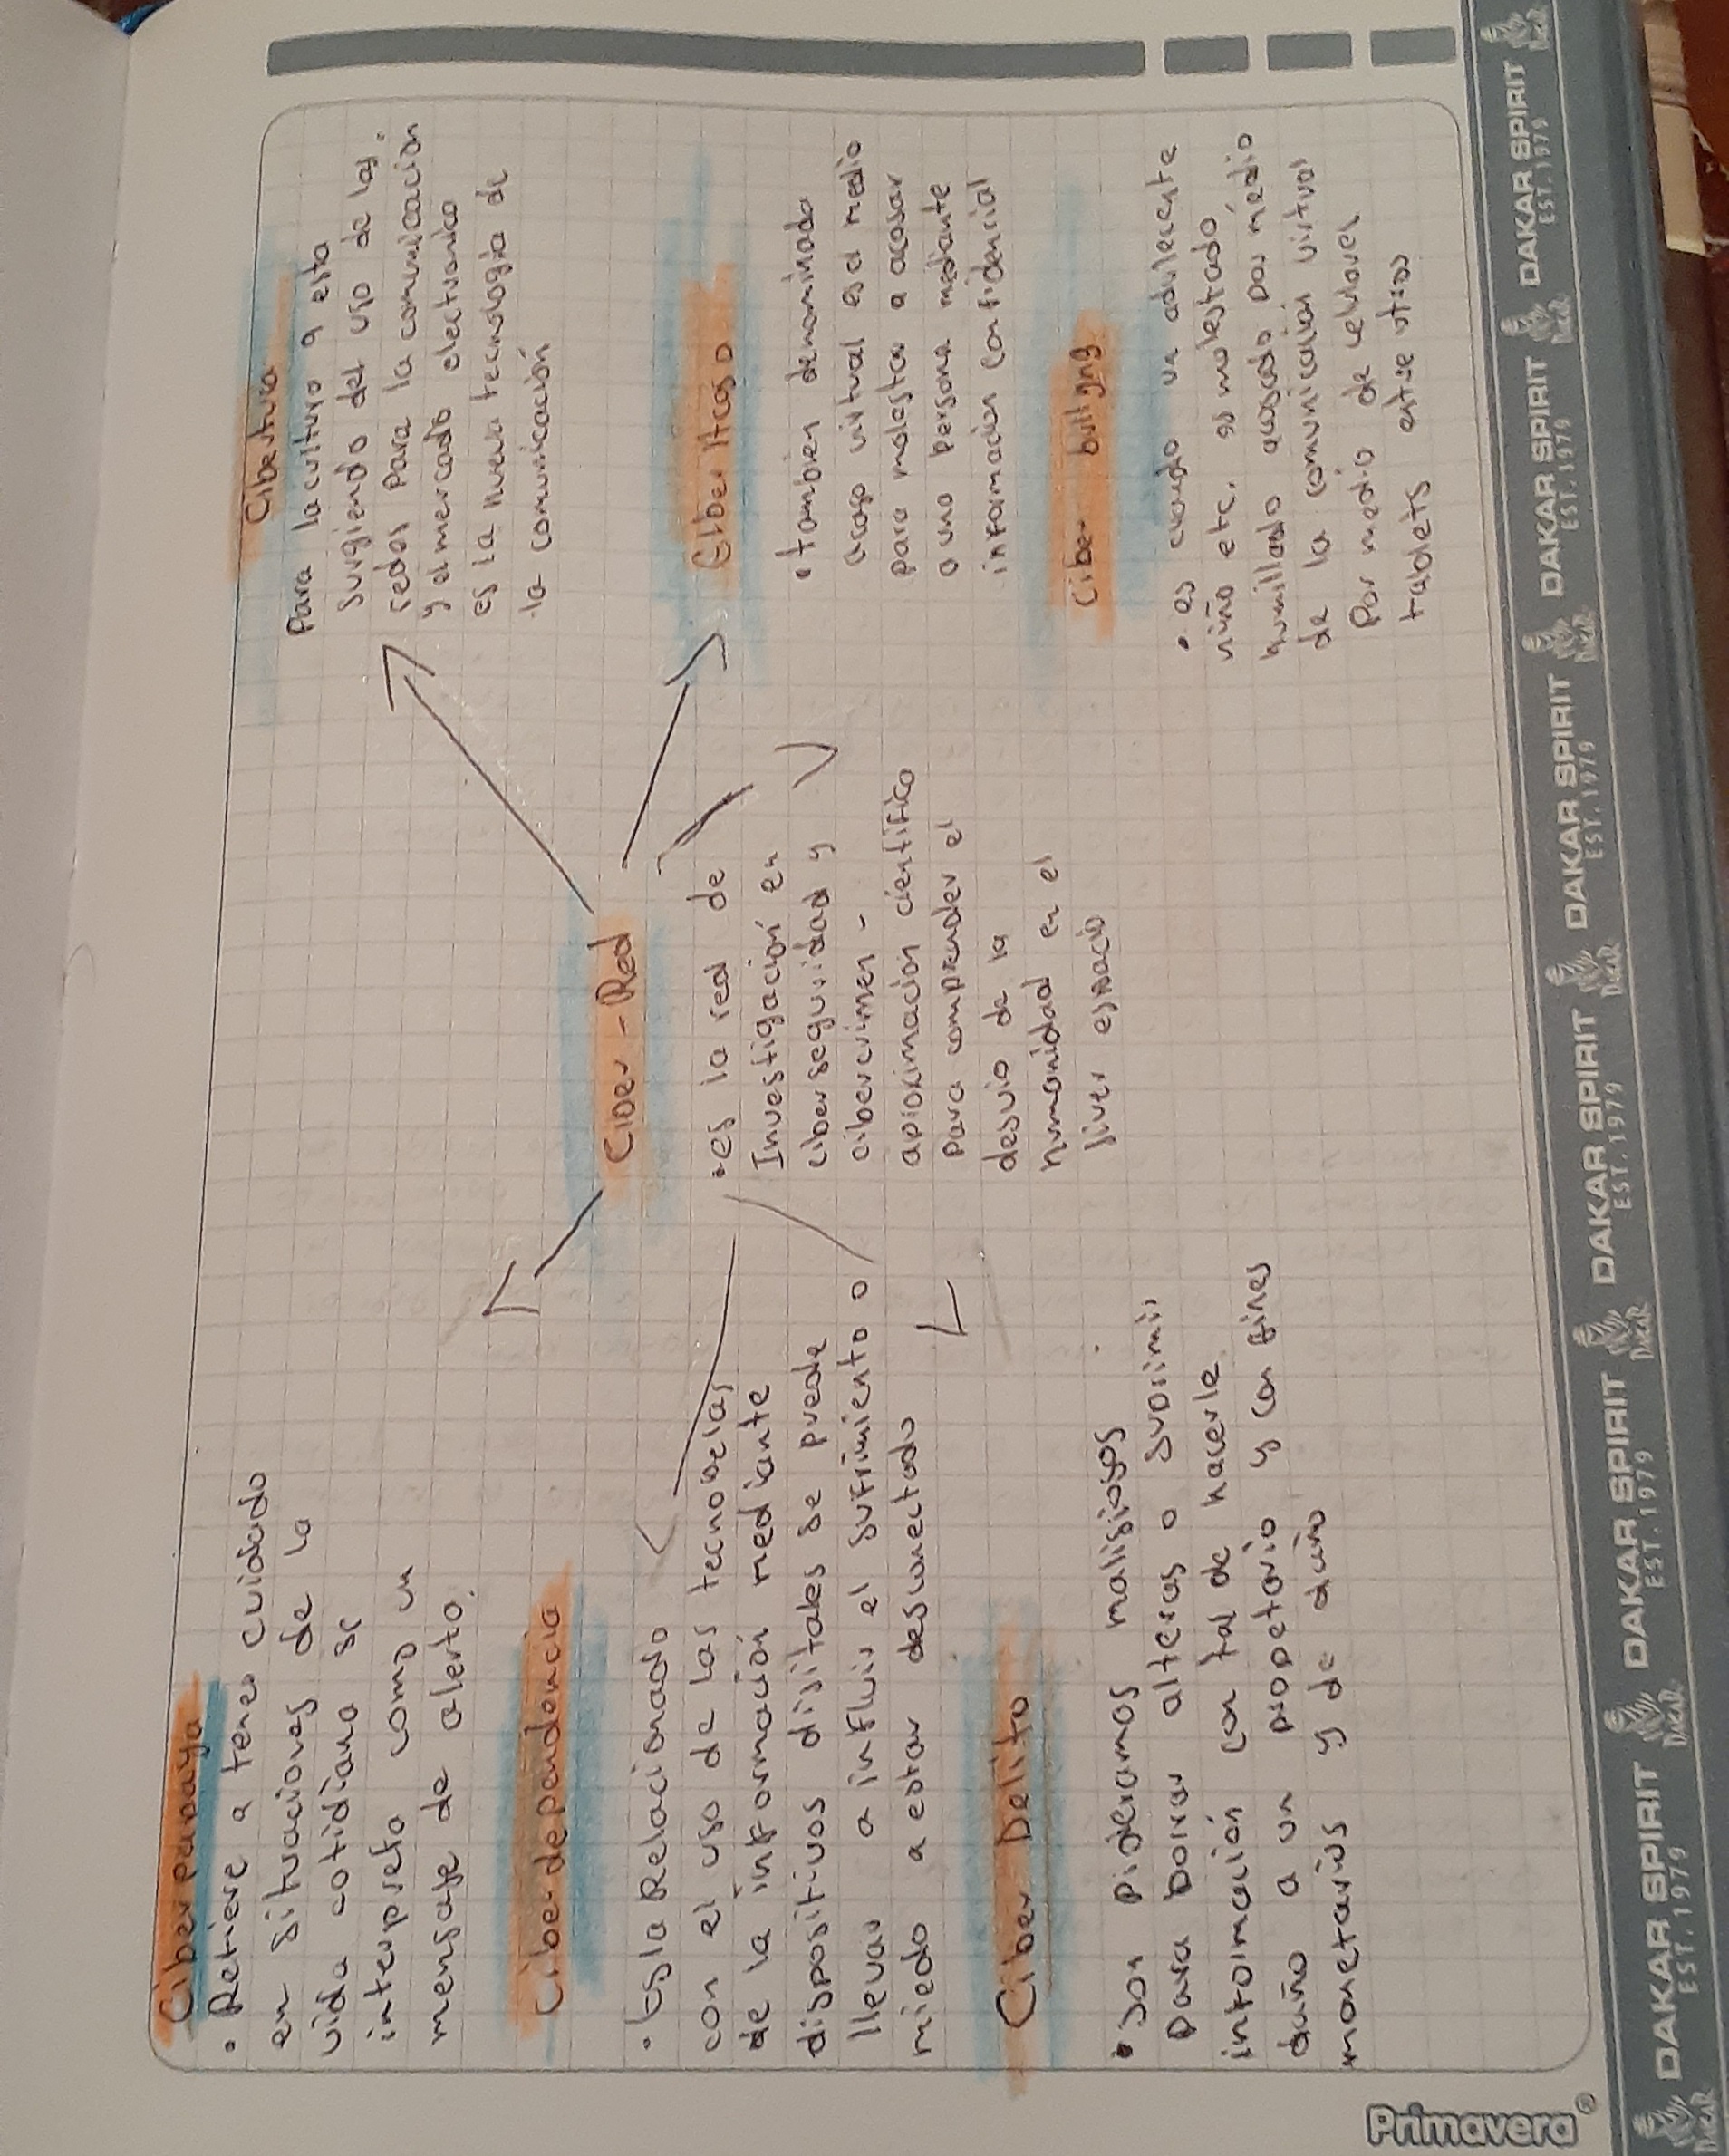 Ciber papaya
• Refiere a tener cuidado
en situaciones de la
vida cotidiana se
interpreta como un
mensaje de alerta.
Ciberdependencia
• Esla Relacionado
con el uso de las tecnobelas
de la información mediante
dispositivos disitales se puede
llevar a influir el sufrimiento o
miedo a estar desconectado
Ciber-Delito
• son Pidieramos malisiosos
Para borrar alteras o suprimir
información con tal de hacerle
daño a un propetario y con fines
monetarios y de daño
Ciber-Red
• es la red de
Investigación en
ciberseguridad y
cibercrimen -
aproximación cientifico
para comprender el
desvio de la
humanidad en el
siver espacio
Ciberltura
Para la cultura q esta
surgiendo del uso de las
redes para la comunicación
y el mercado electronico
es la nueva tecnologia de
la comunicación
Ciber ltcoso
• tambien denominado
acoso virtual es el medio
para molestar a acosar
a una persona mediante
informacion confidencial
Ciber bullyng
• es cuando un adulecente
niño etc. es molestado
humillado acosado por médio
de la comunicación virtual
Por medio de celulares
tablets entre otros
Primavera®
DAKAR SPIRIT
EST. 1979
DAKAR
DAKAR SPIRIT
EST. 1979
DAKAR
DAKAR SPIRIT
EST. 1979
DAKAR
DAKAR SPIRIT
EST. 1979
DAKAR
DAKAR SPIRIT
EST. 1979
DAKAR
DAKAR SPIRIT
EST. 1979
DAKAR
DAKAR SPIRIT
EST. 1979
DAKAR